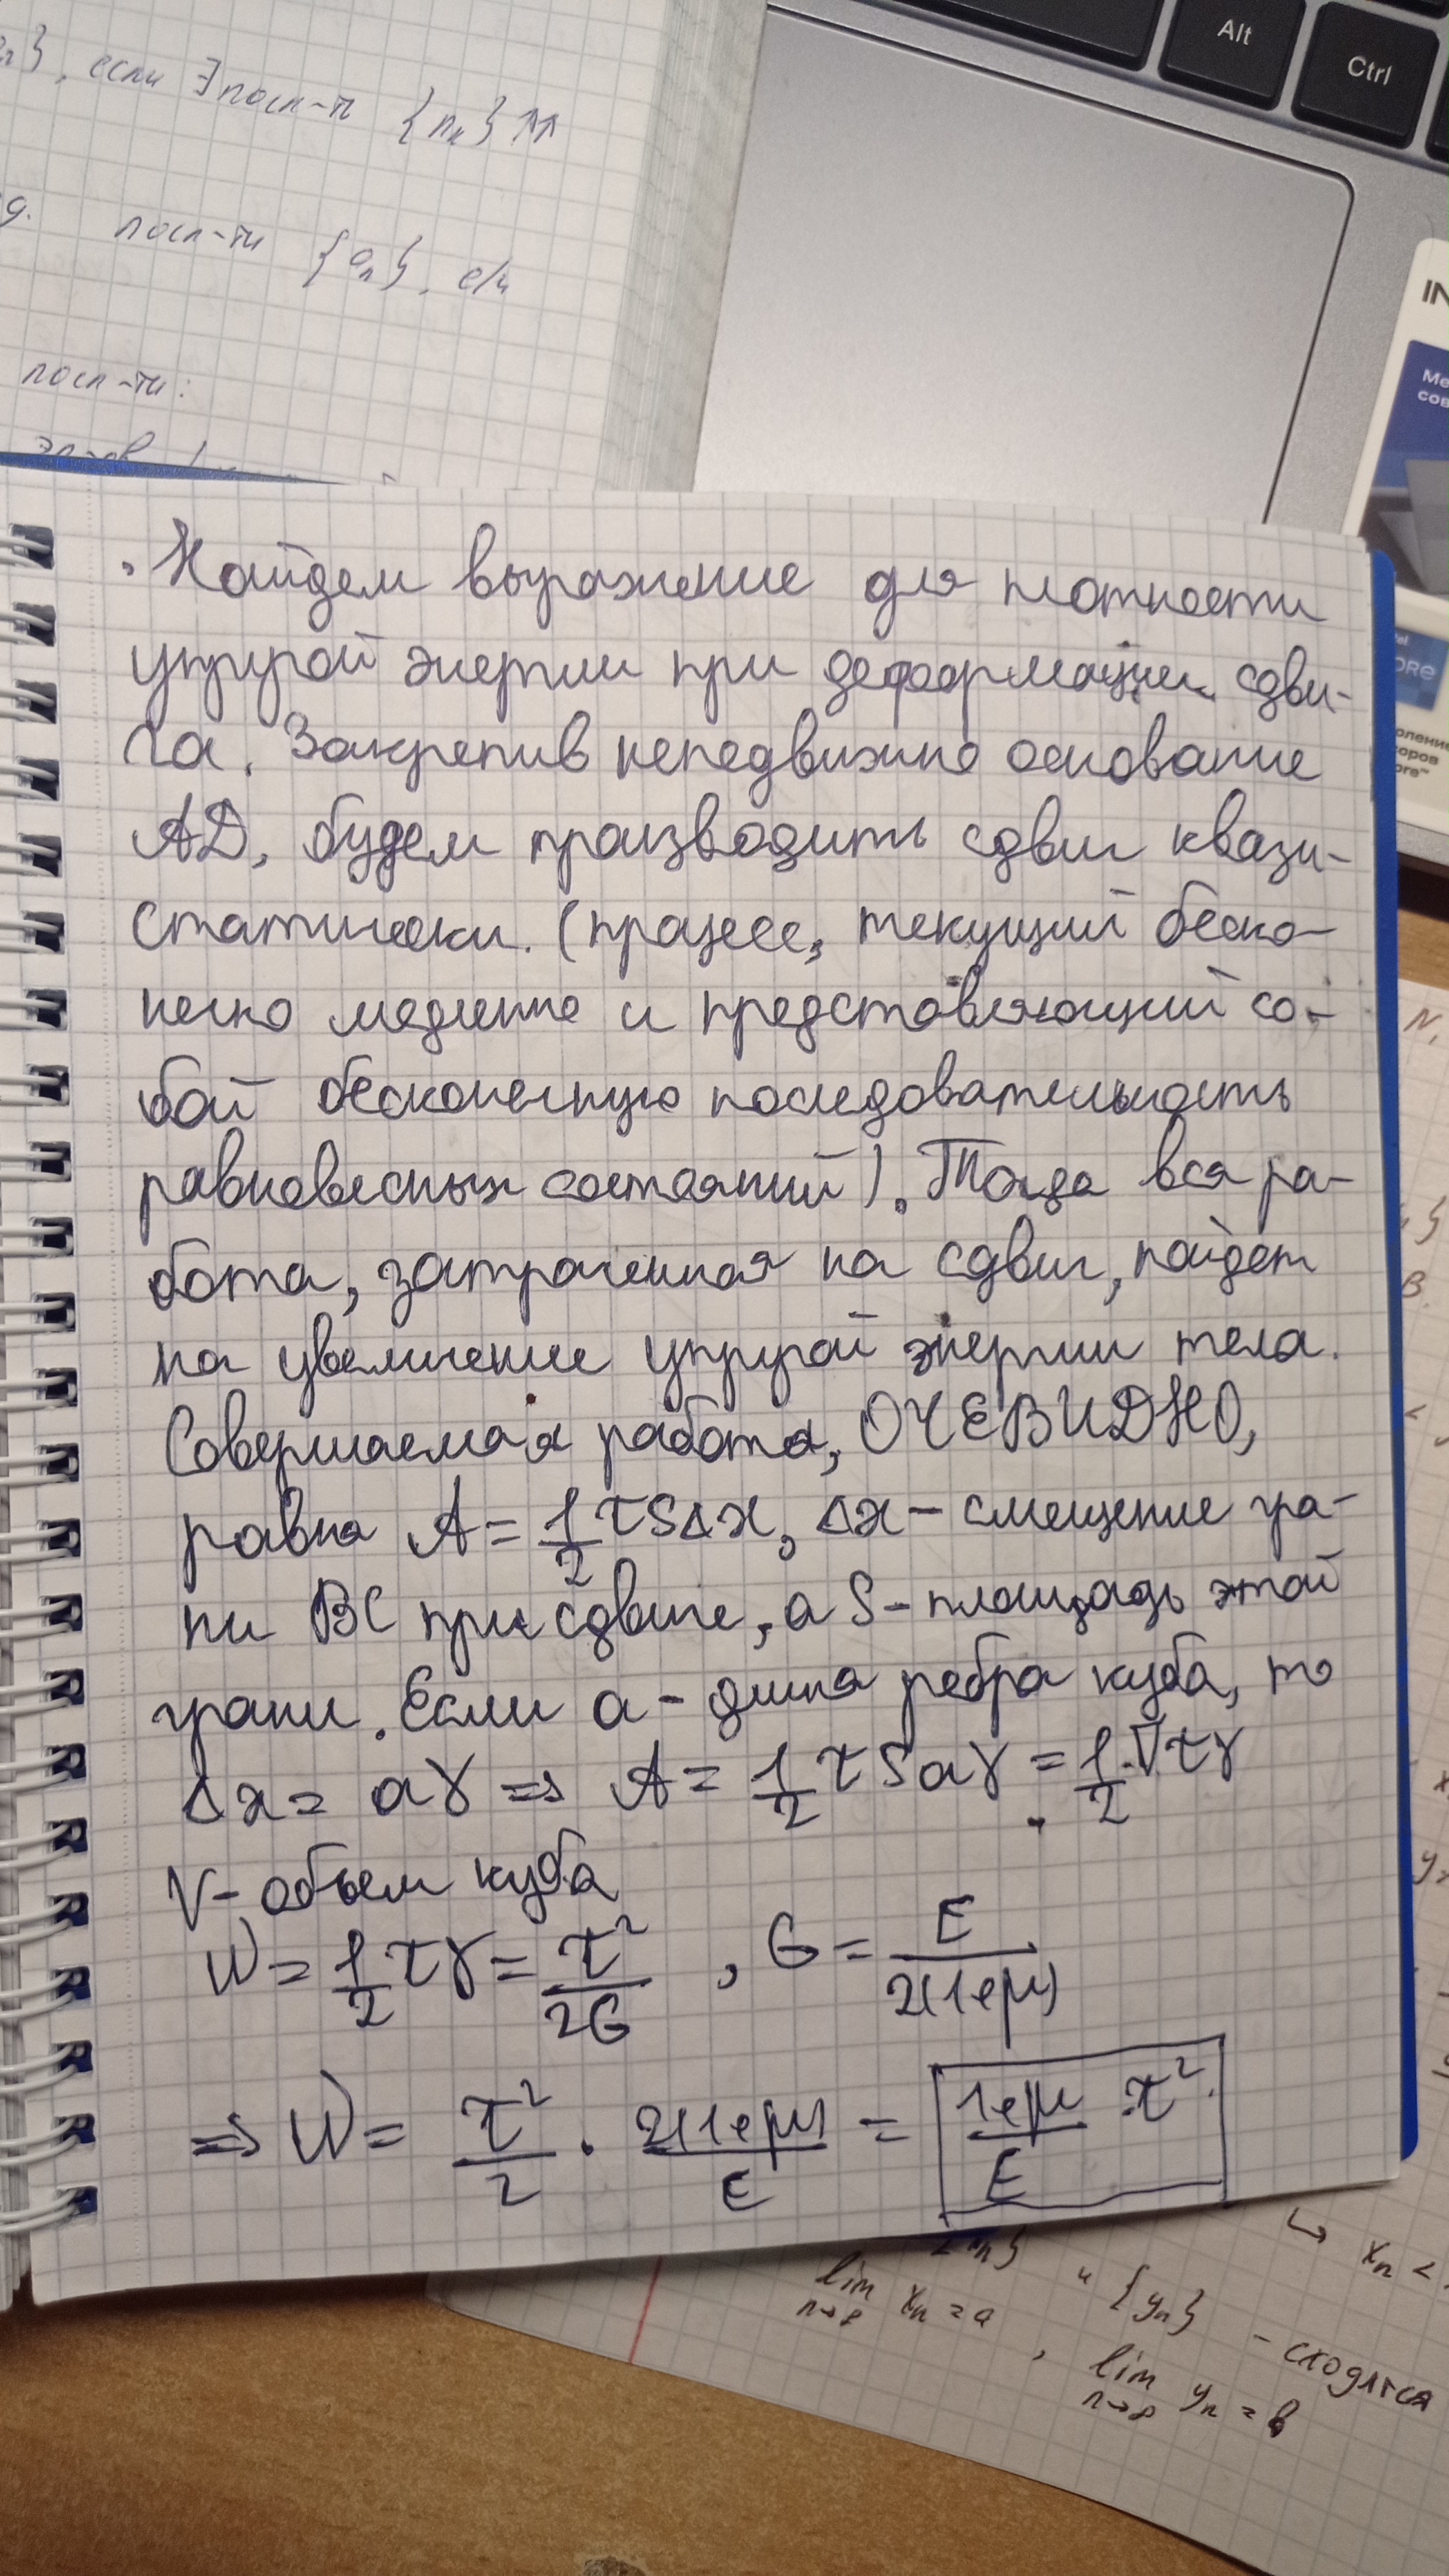 , если ∃ посл-ть {nₖ}↑↑
посл-ти {aₙ}, если
посл-ти:
Alt
Ctrl
IN
Найдем выражение для плотности
упругой энергии при деформации сдви-
га. Закрепив неподвижно основание
AD, будем производить сдвиг квази-
статически. (процесс, текущий беско-
нечно медленно и представляющий со-
бой бесконечную последовательность
равновесных состояний). Тогда вся ра-
бота, затраченная на сдвиг, пойдет
на увеличение упругой энергии тела.
Совершаемая работа, ОЧЕВИДНО,
равна A = 1/2 τSΔx, Δx - смещение гра-
ни BC при сдвиге, а S - площадь этой
грани. Если a - длина ребра куба, то
Δx = aγ => A = 1/2 τSaγ = 1/2 Vτγ
V - объем куба
W = 1/2 τγ = τ²/2G , G = E/2(1+μ)
=> W = τ²/2 · 2(1+μ)/E = 1+μ/E · τ²
lim xₙ = a
n→∞
и {yₙ} - сходятся
, lim yₙ = b
n→∞
↳ xₙ <